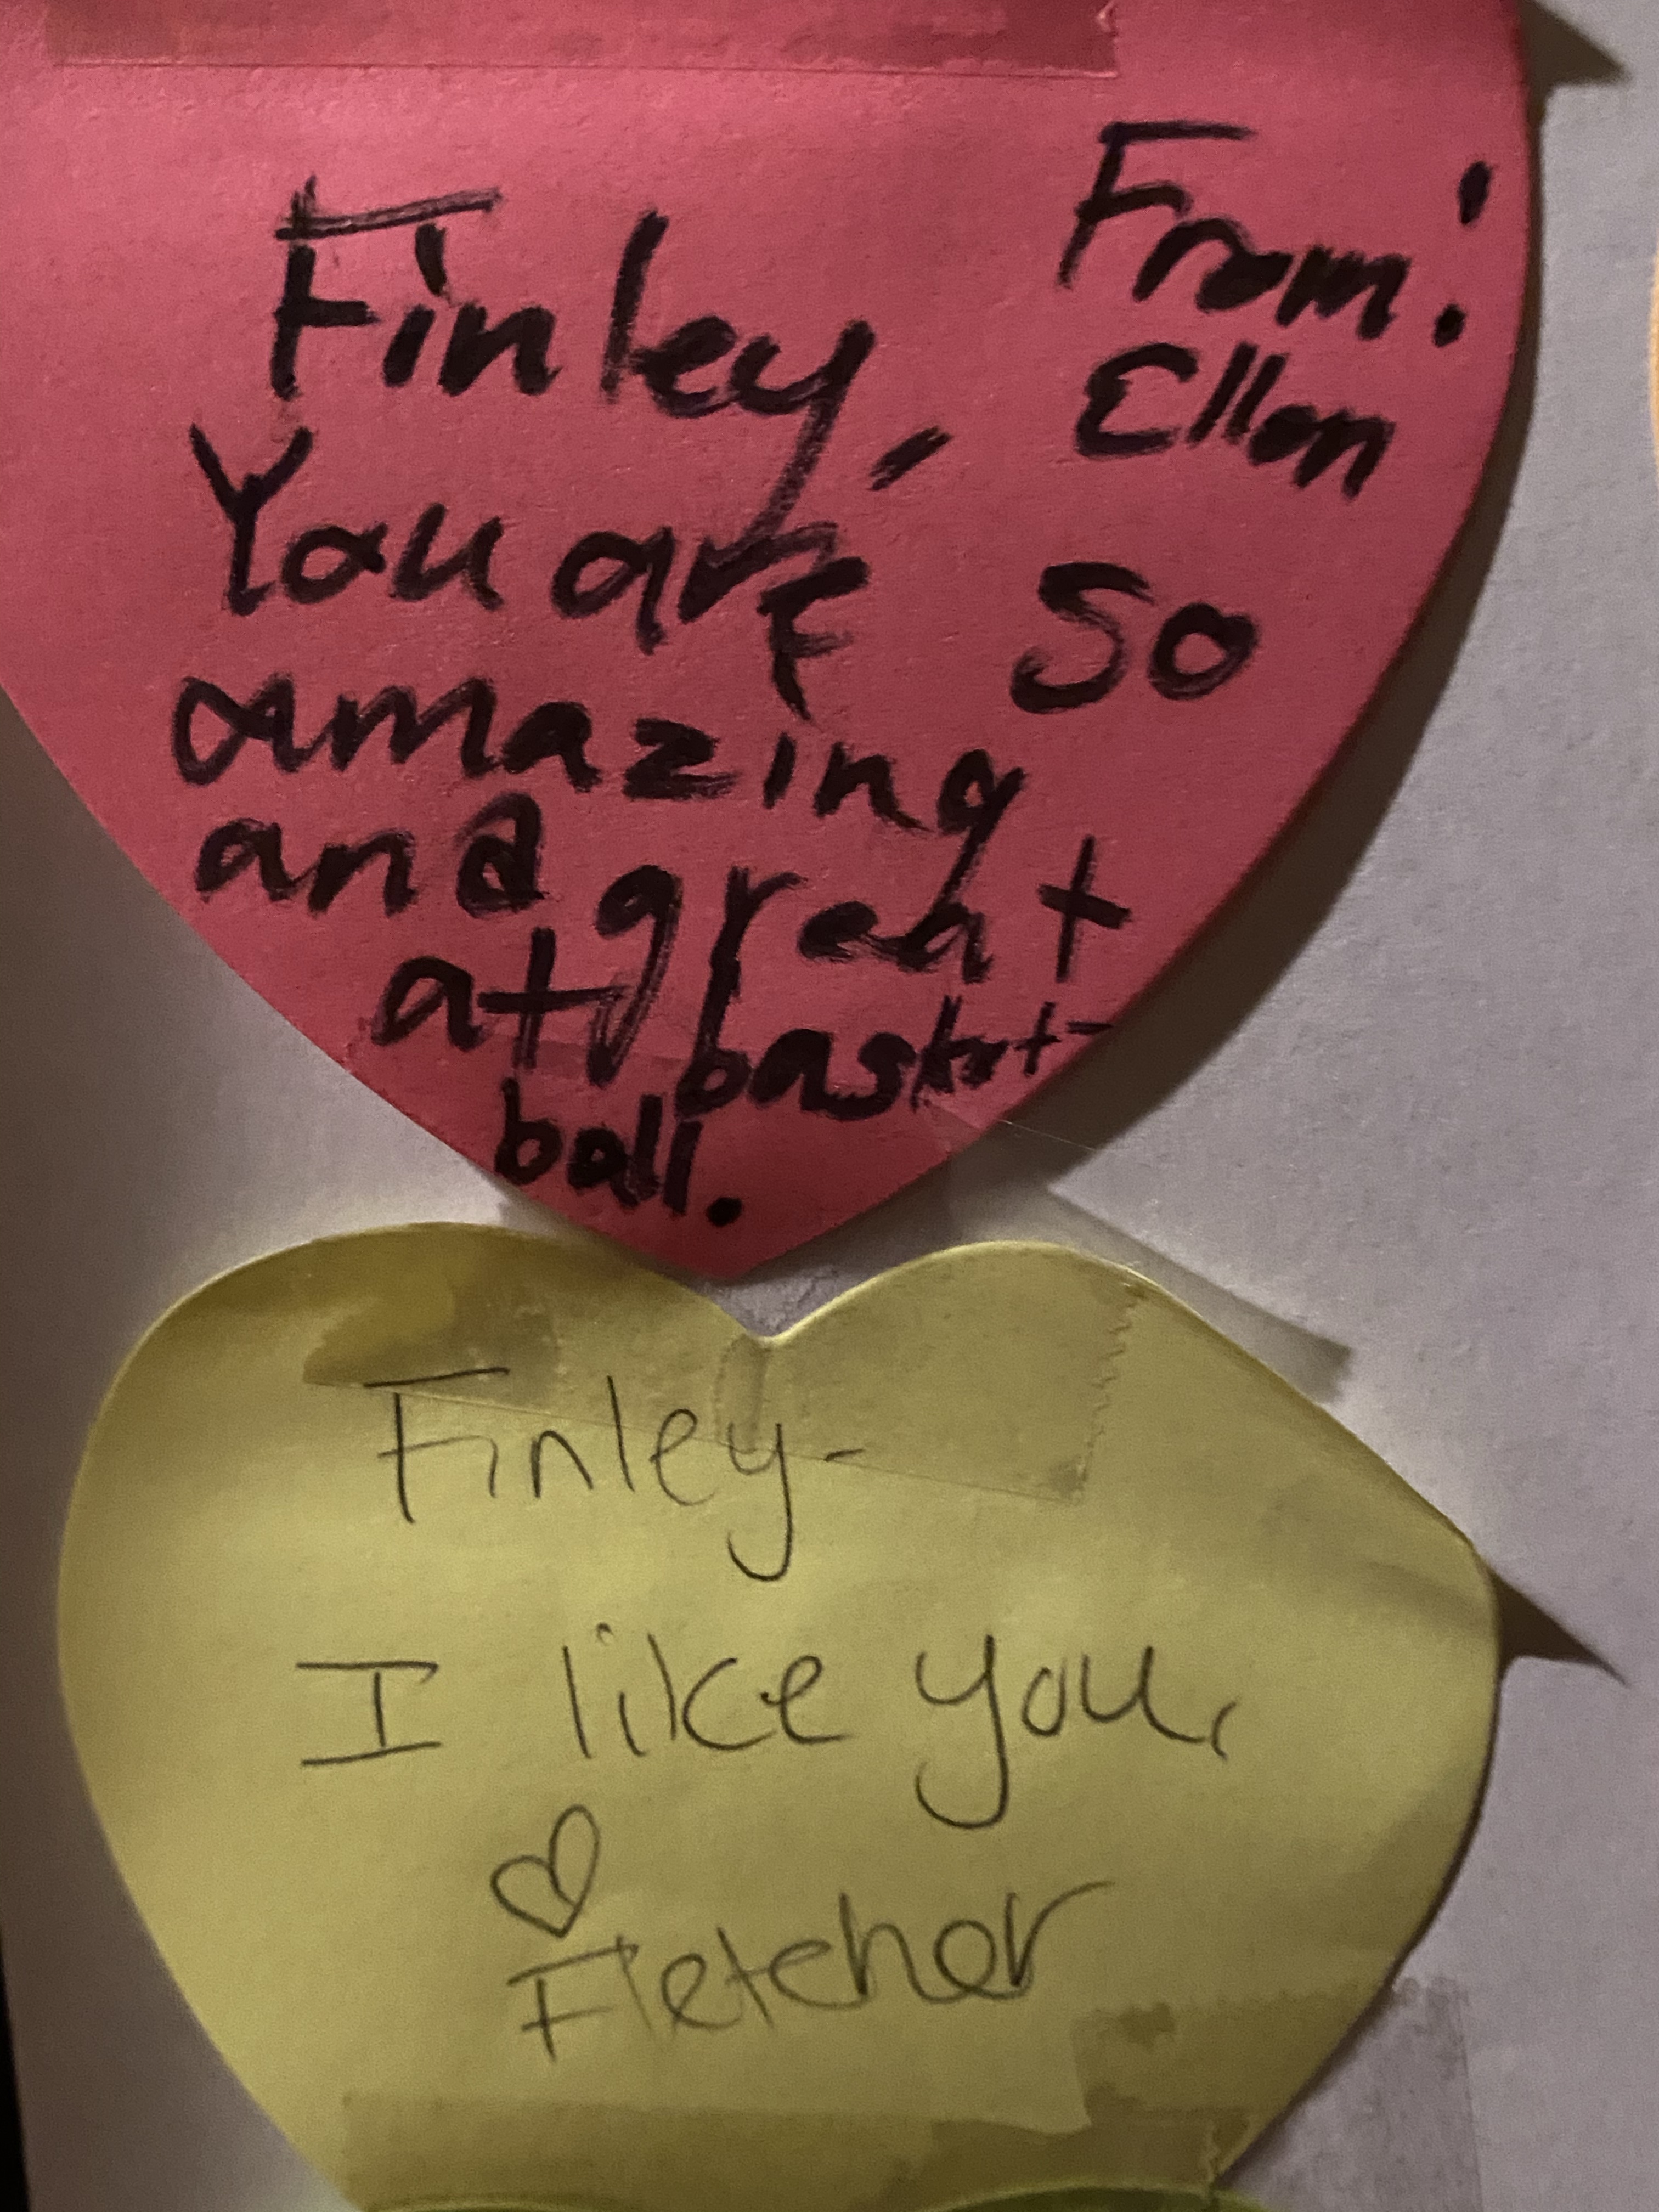 Finley,
From:
Ellen
You are so
amazing
and great
at basket-
ball.
Finley-
I like you,
Fletcher